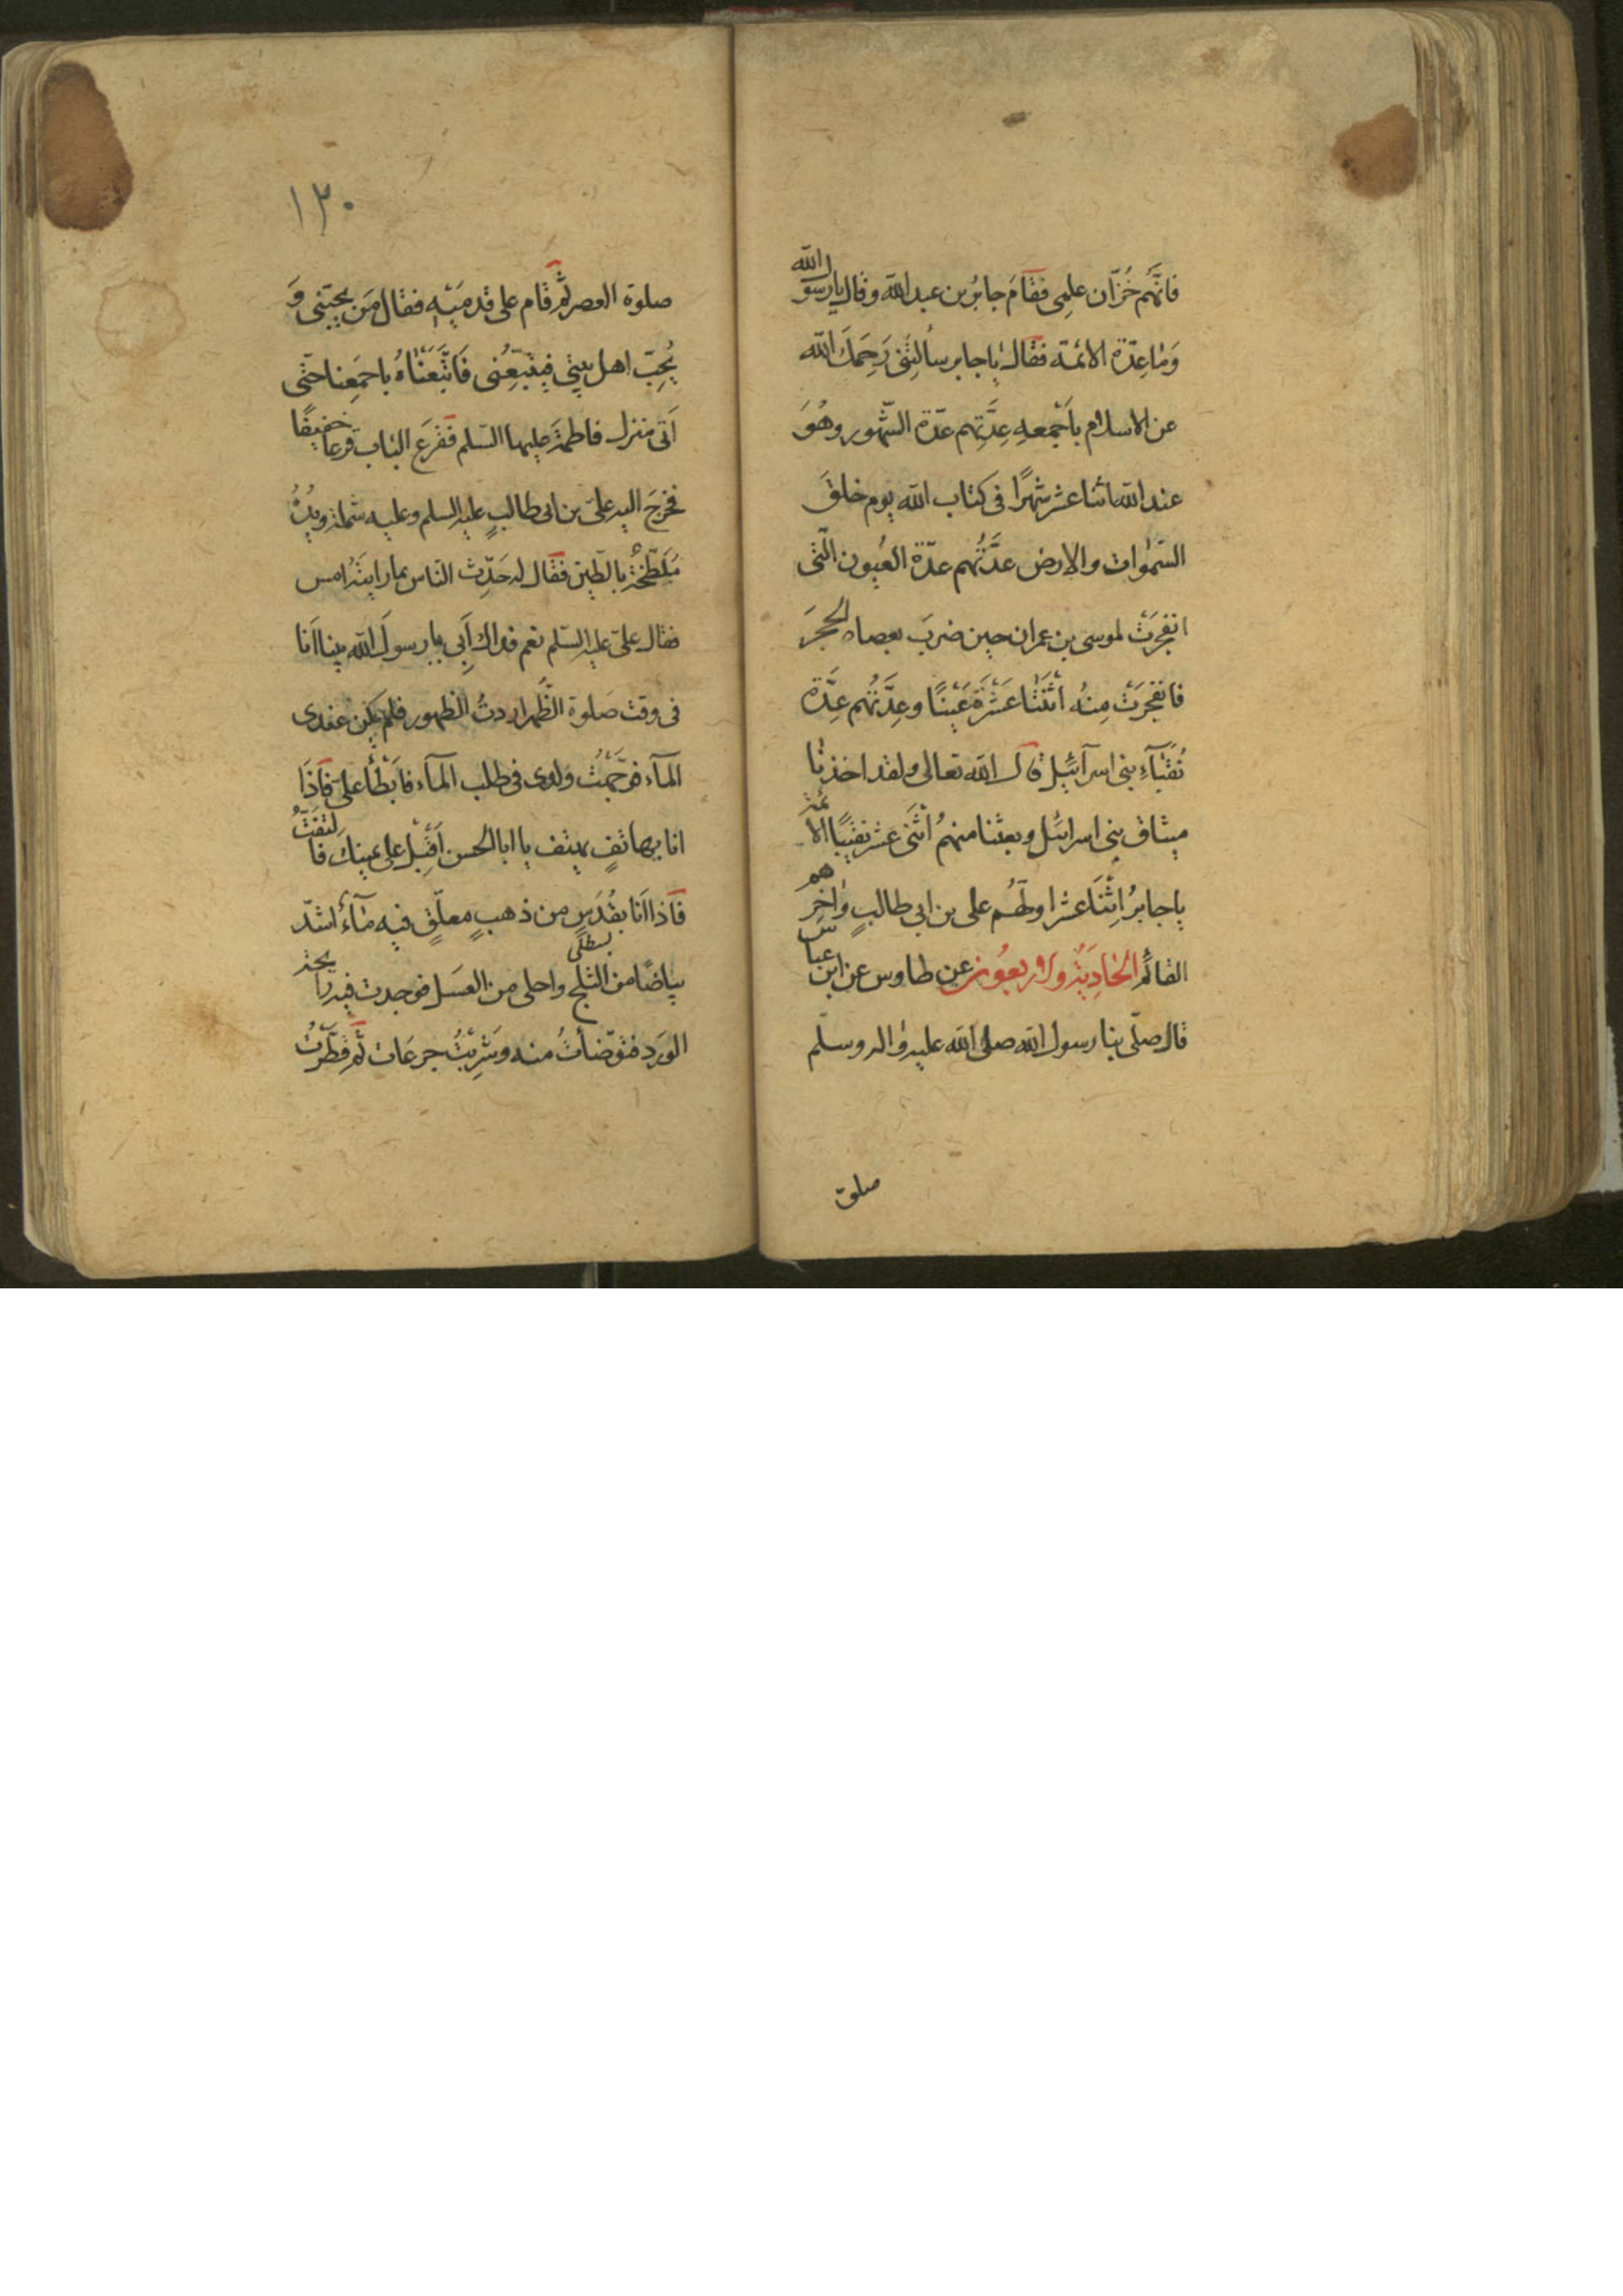 فانَّهُم خُزّان علمِى فقامَ جابرُ بن عبد الله وقال يارسول الله
وَمٰا عِدّة الائمّة فقال يٰا جابر سألتَنى رَحِمَكَ الله
عن الاسلام بأجْمعهِ عِدَّتِهم عدّة الشّهور وهُوَ
عند الله اثنا عشر شهرًا فى كتاب الله يوم خلقَ
السّمٰوات والارض عدَّتُهم عدّة العُيون الّتى
انفجرَتْ لموسى بن عمران حين ضربَ بعصاه الحجرَ
فانفجرَتْ مِنْهُ اثْنَتٰا عَشْرَةَ عَيْنًا وعِدَّتُهم عِدَّة
نُقَبٰآءِ بنى اسرآئيل قال الله تعالى ولقد اخذنا
ميثاق بنى اسرائيل وبعثنا منهمُ اثْنَى عشر نقيبًا الائمّة
يٰا جابرُ اِثْنَا عشر اولَهُم على بن ابى طالبٍ وٰاخِرهم
القائم الحٰادِيَةُ والاربعُون عن طاوس عن ابن عباس
قال صلّى بنا رسول الله صلى الله عليه وٰاله وسلّم
صلوة
١٢٠
صلوة العصر ثم قام على قدمَيْهِ فقال مَن يحبّنى وَ
يُحِبّ اهل بيتى فيتبَعُنى فَاتَّبَعْنٰاهُ باجمَعِنا حتّى
اَتى منزل فاطمةَ عليها السّلم فقرعَ البٰاب قرعا خفيفًا
فخرجَ اليه علىّ بن ابى طالبٍ عليه السلم وعليه شملة ويدُهُ
مُلطّخةٌ بالطّين فقال له حَدِّث النّاس بمارايتَه امس
فقال علىّ عليه السّلم نعم فداك اَبِى يا رسولَ الله بينا اَنا
فى وقت صَلوة الظُهر اردتُ الطهور فلم يكن عندى
المآء فوجّهتُ ولدى فى طلب المآء فابَطأ علىّ فاذَا
انا بهاتفٍ يهتف يا ابا الحسن اَقْبِل على يمينك فالتفَتُّ
فاذا اَنا بقُدَسٍ من ذهبٍ معلّقٍ فيه مآءٌ اشدّ
بياضًا من الثلج واحلى من العسَل فوجدت فيه رائحة
الوَرد فتوّضأتُ منه وشَرِبْتُ جرعَات ثم قطَّرْتُ